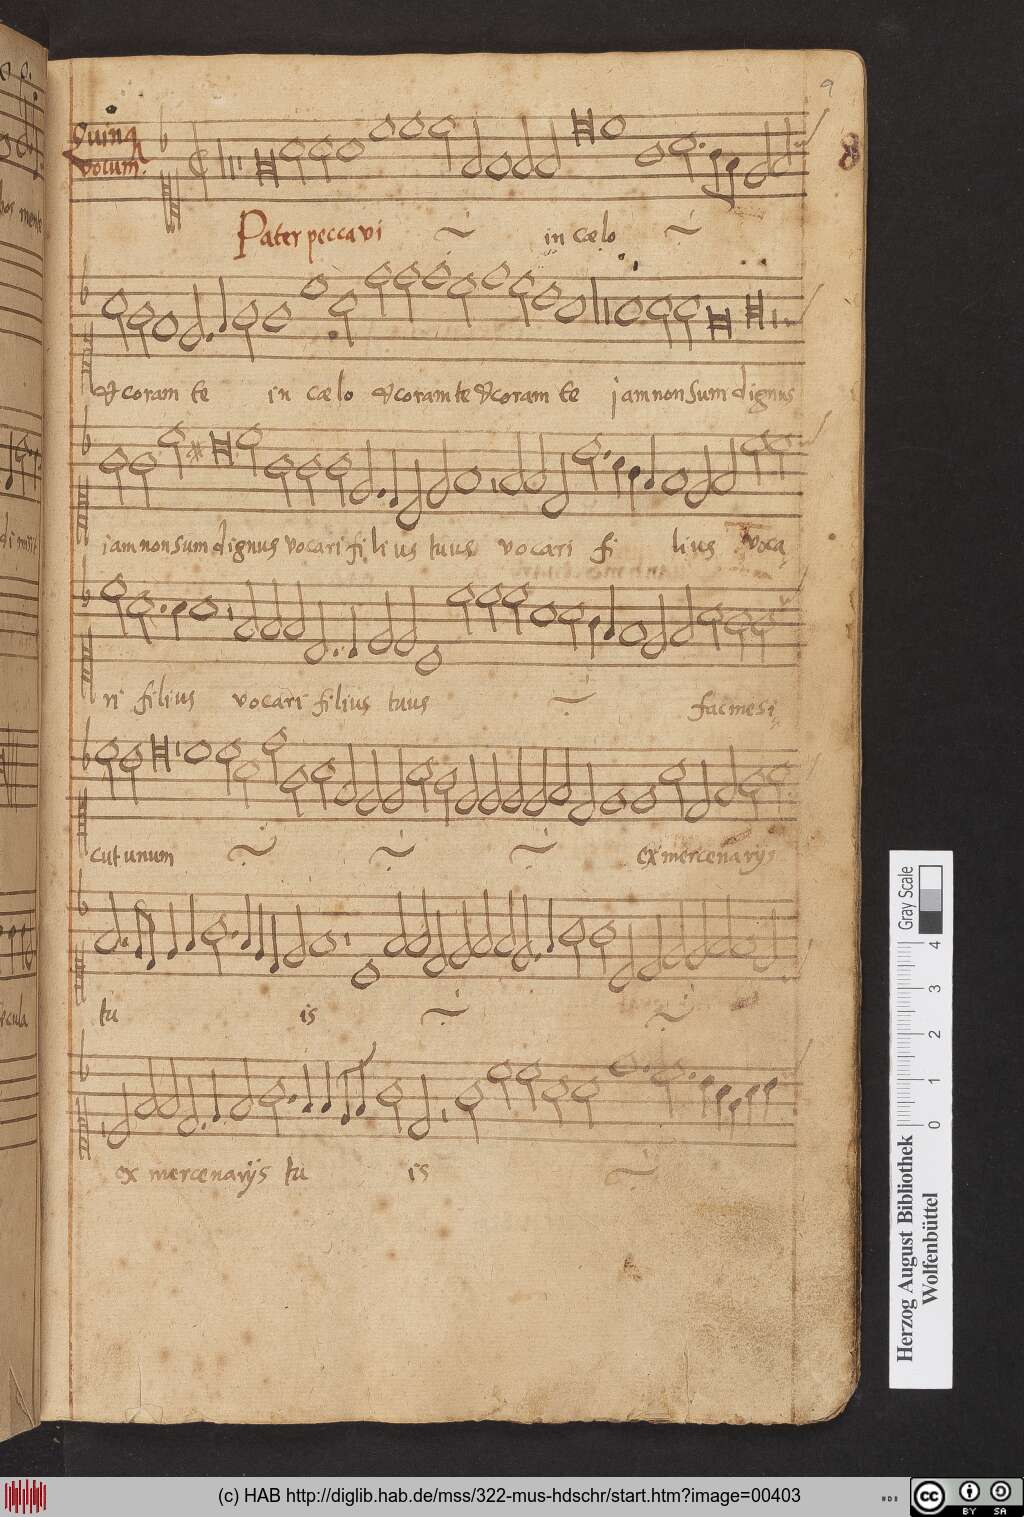 9
Quinq
vocum.
8
Pater peccavi in cælo
& coram te in cælo & coram te & coram te iam non sum dignus
iam non sum dignus vocari filius tuus vocari fi lius voca
ri filius vocari filius tuus fac me si
cut unum ex mercenarijs
tu is
ex mercenarijs tu is
Gray Scale
4
3
2
1
0
Herzog August Bibliothek
Wolfenbüttel
(c) HAB http://diglib.hab.de/mss/322-mus-hdschr/start.htm?image=00403
cc BY SA